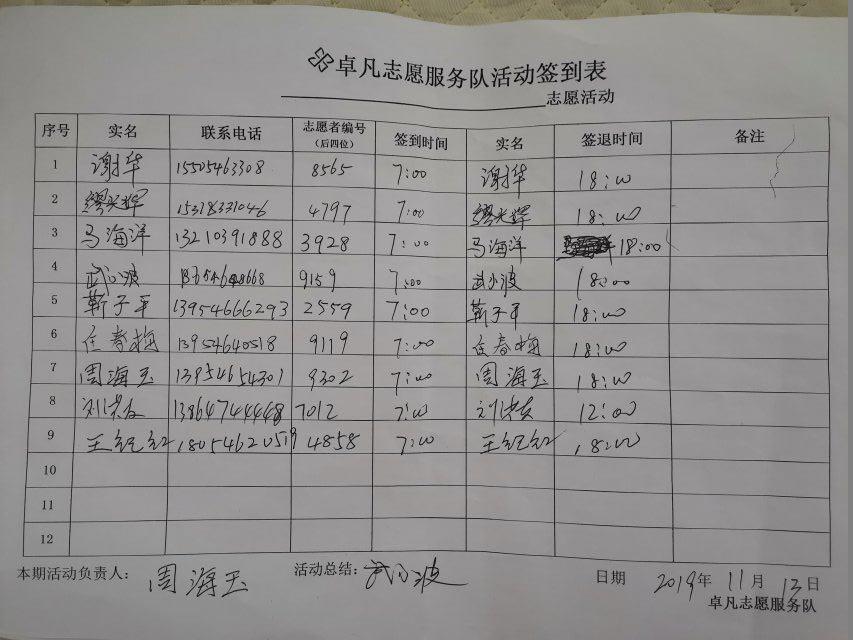 卓凡志愿服务队活动签到表
志愿活动
序号 实名 联系电话 志愿者编号（后四位） 签到时间 实名 签退时间 备注
1 谢华 15505463308 8565 7:00 谢华 18:00
2 缪光辉 15318331046 4797 7:00 缪光辉 18:00
3 马海洋 13210391888 3928 7:00 马海洋 18:00
4 武小波 9159 7:00 武小波 18:00
5 靳子平 13954666293 2559 7:00 靳子平 18:00
6 任春梅 13954640518 9119 7:00 任春梅 18:00
7 周海玉 13954654301 9302 7:00 周海玉 18:00
8 13864744448 7012 7:00 12:00
9 王纪红 18054620519 4858 7:00 王纪红 18:00
10
11
12
本期活动负责人： 周海玉 活动总结： 武小波 日期 2019年 11月 13日
卓凡志愿服务队